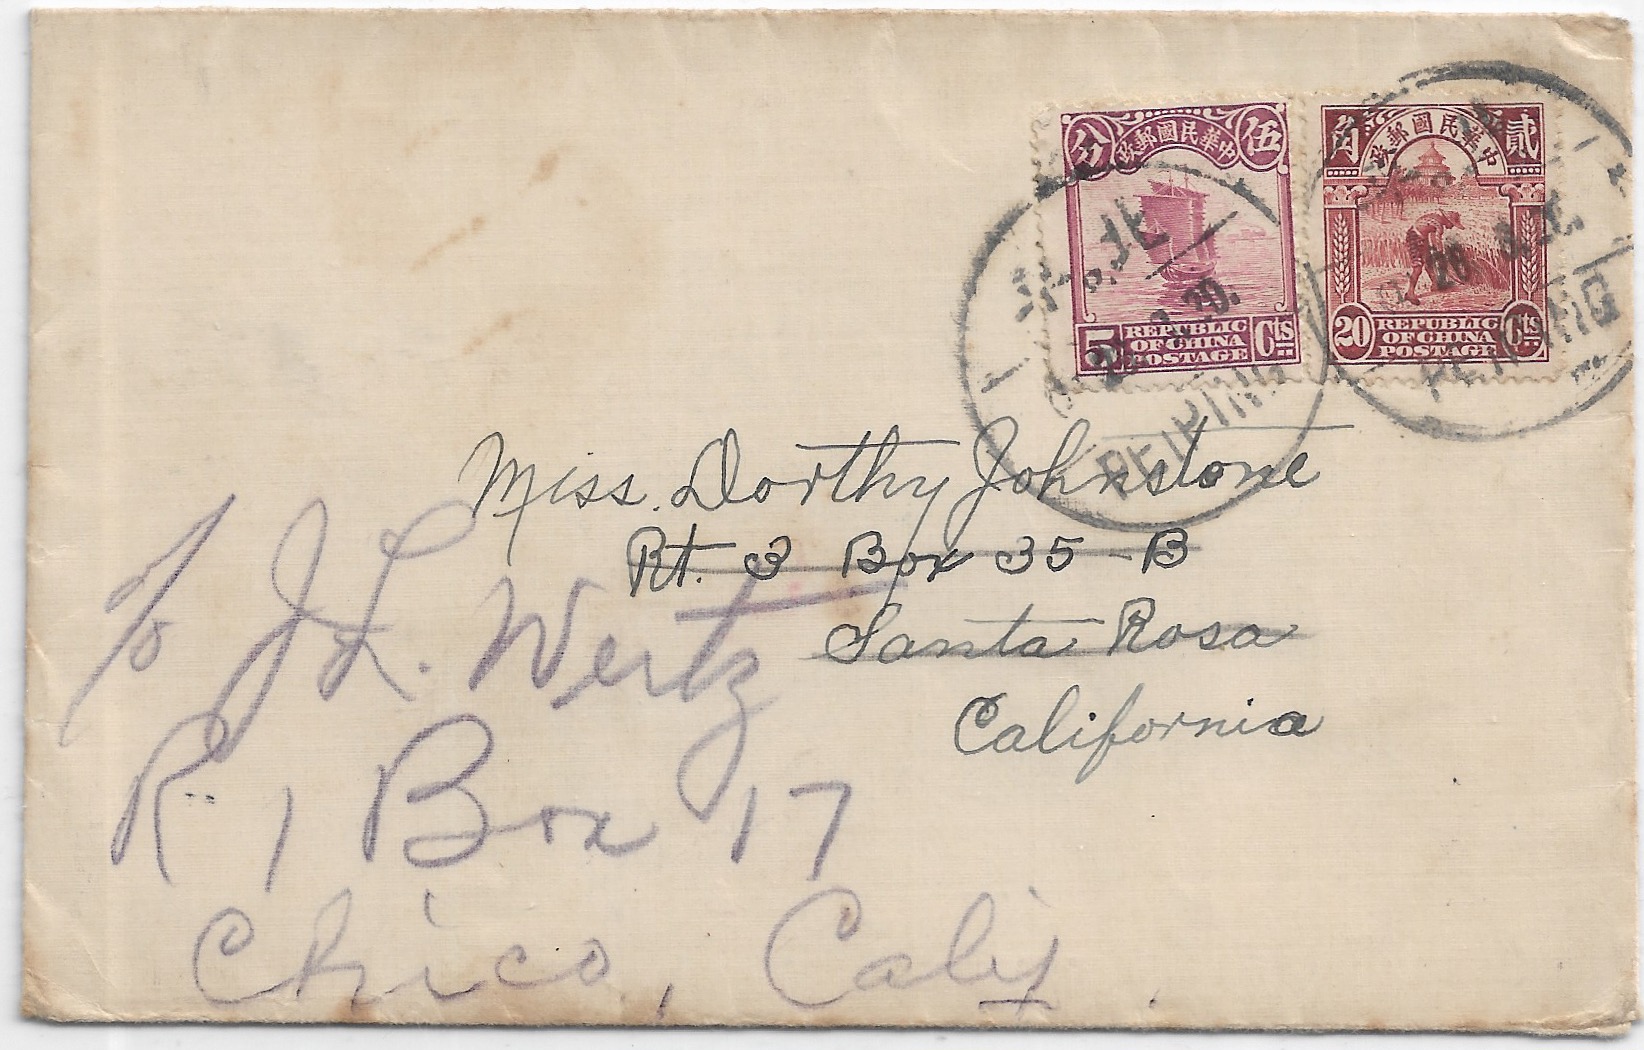 伍 中華民國郵政 分
5 REPUBLIC OF CHINA POSTAGE Cts
貳 中華民國郵政 角
20 REPUBLIC OF CHINA POSTAGE Cts
PEIPING
PEIPING
Miss. Dorthy Johnstone
Rt. 3 Box 35-B
Santa Rosa
California
℅ J. L. Wertz
R 1 Box 17
Chico, Calif.